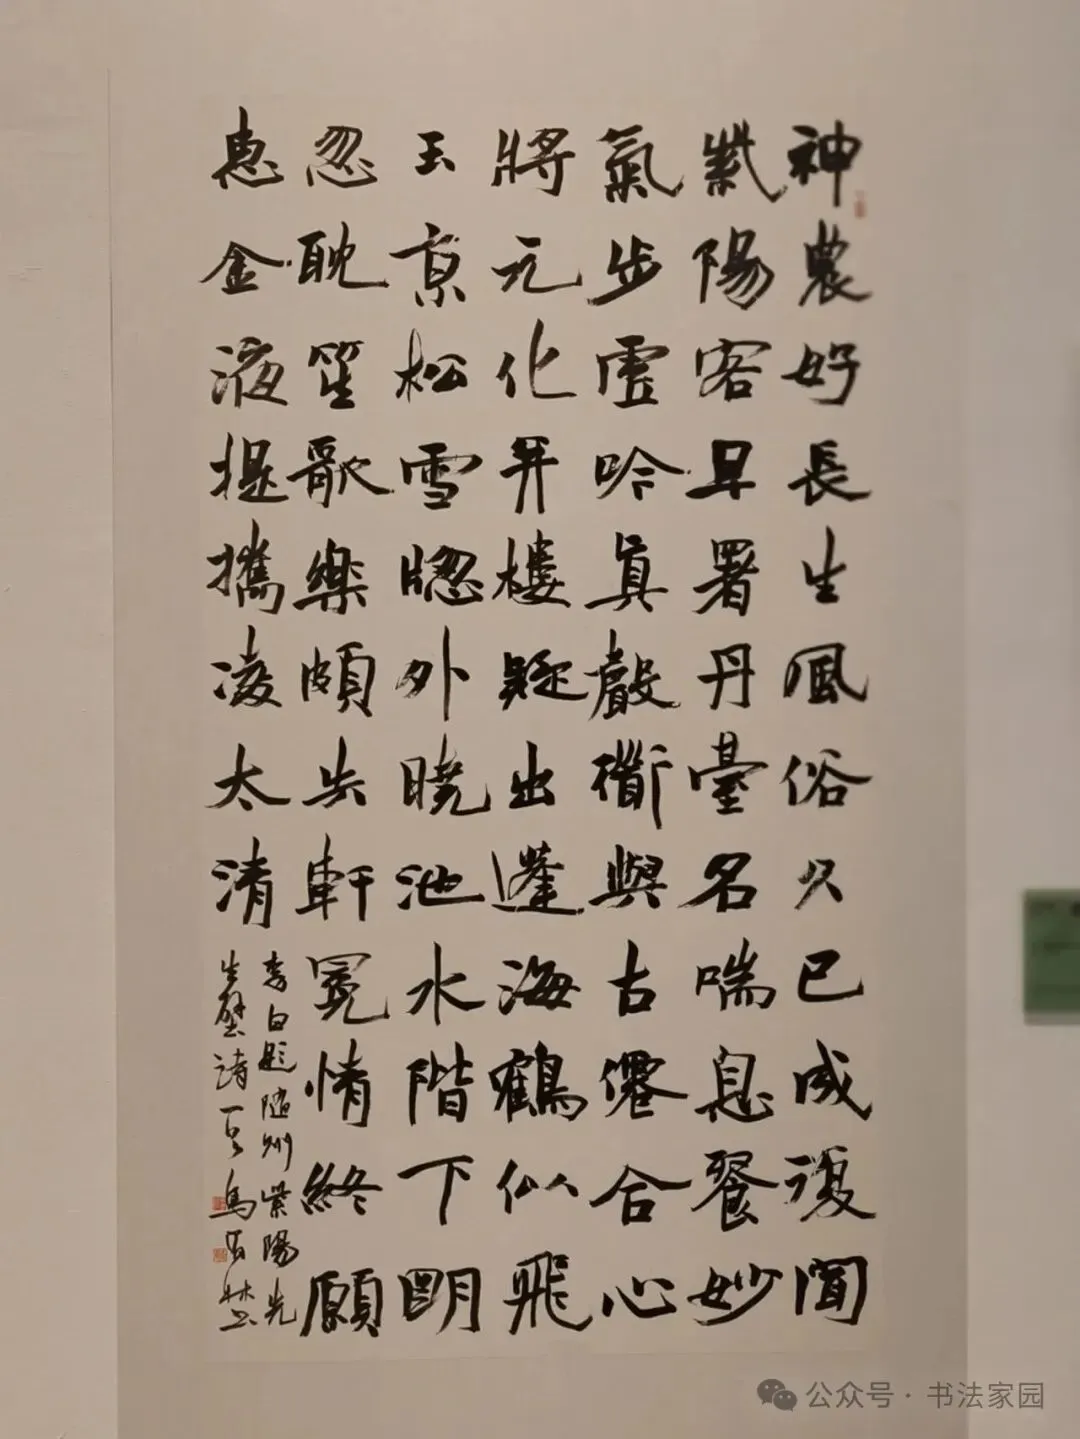 神農好長生風俗久已成復聞
紫陽客早署丹臺名喘息餐妙
氣步虛吟真聲衟與古僊合心
將元化并樓疑出蓬海鶴似飛
玉京松雪牕外曉池水階下朙
忽耽笙歌樂頗失軒冕情終願
惠金液提攜凌太清
李白題隨州紫陽先
生壁詩一首
公众号 · 书法家园